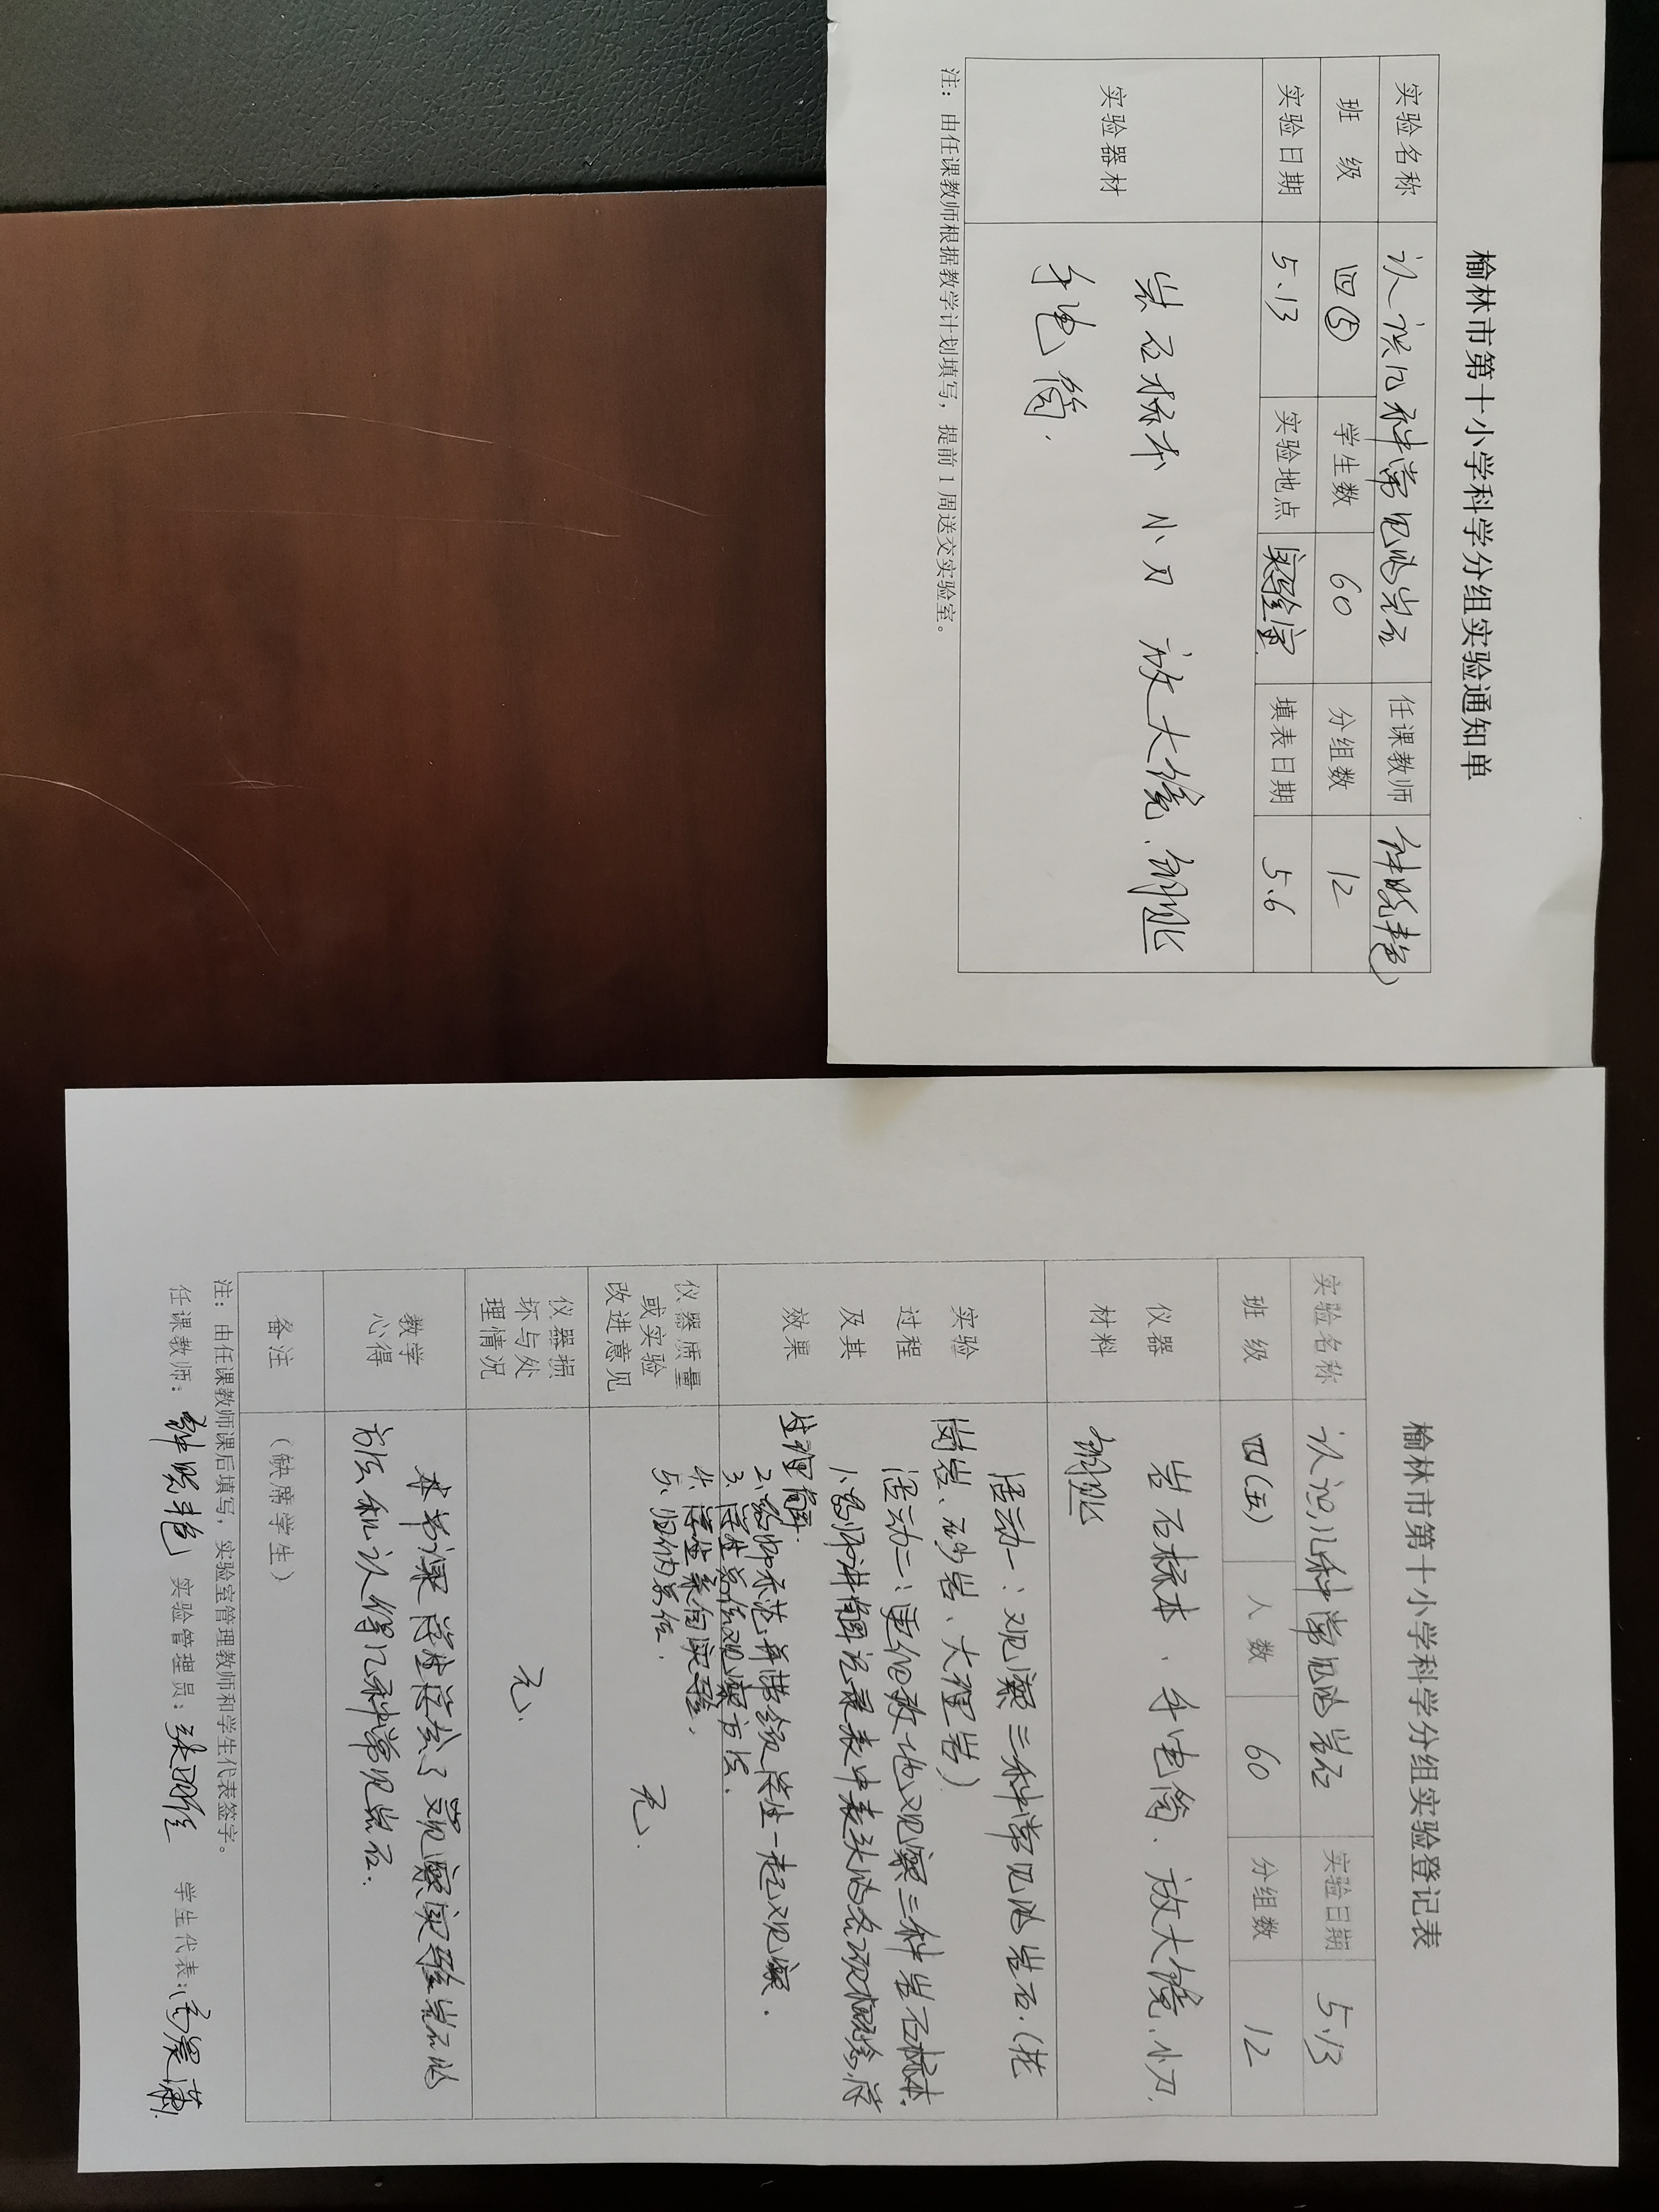 榆林市第十小学科学分组实验通知单
实验名称 认识几种常见的岩石 任课教师 钟晓艳
班 级 四⑤ 学生数 60 分组数 12
实验日期 5.13 实验地点 实验室 填表日期 5.6
实验器材 岩石标本 小刀 放大镜、铜
手电筒.
注：由任课教师根据教学计划填写，提前1周送交实验室。
榆林市第十小学科学分组实验登记表
实验名称 认识几种常见的岩石 实验日期 5.13
班 级 四(五) 人 数 60 分组数 12
仪器材料 岩石标本、手电筒、放大镜、小刀,
铜
实验过程及其效果 活动一：观察三种常见的岩石.(花
岗岩、砂岩、大理岩)
活动二：更细致地观察三种岩石标本.
1.教师讲解记录表中表头的各项概念,学
生理解.
2.教师示范,并带领学生一起观察.
3.学生总结观察方法.
4.学生亲自实验.
5.归纳总结.
仪器质量或实验改进意见 无.
仪器损坏与处理情况 无.
教学心得 本节课学生学会了观察实验岩石的
方法和认得几种常见岩石.
备注 （缺席学生）
注：由任课教师课后填写，实验室管理教师和学生代表签字。
任课教师：钟晓艳 实验管理员： 学生代表：